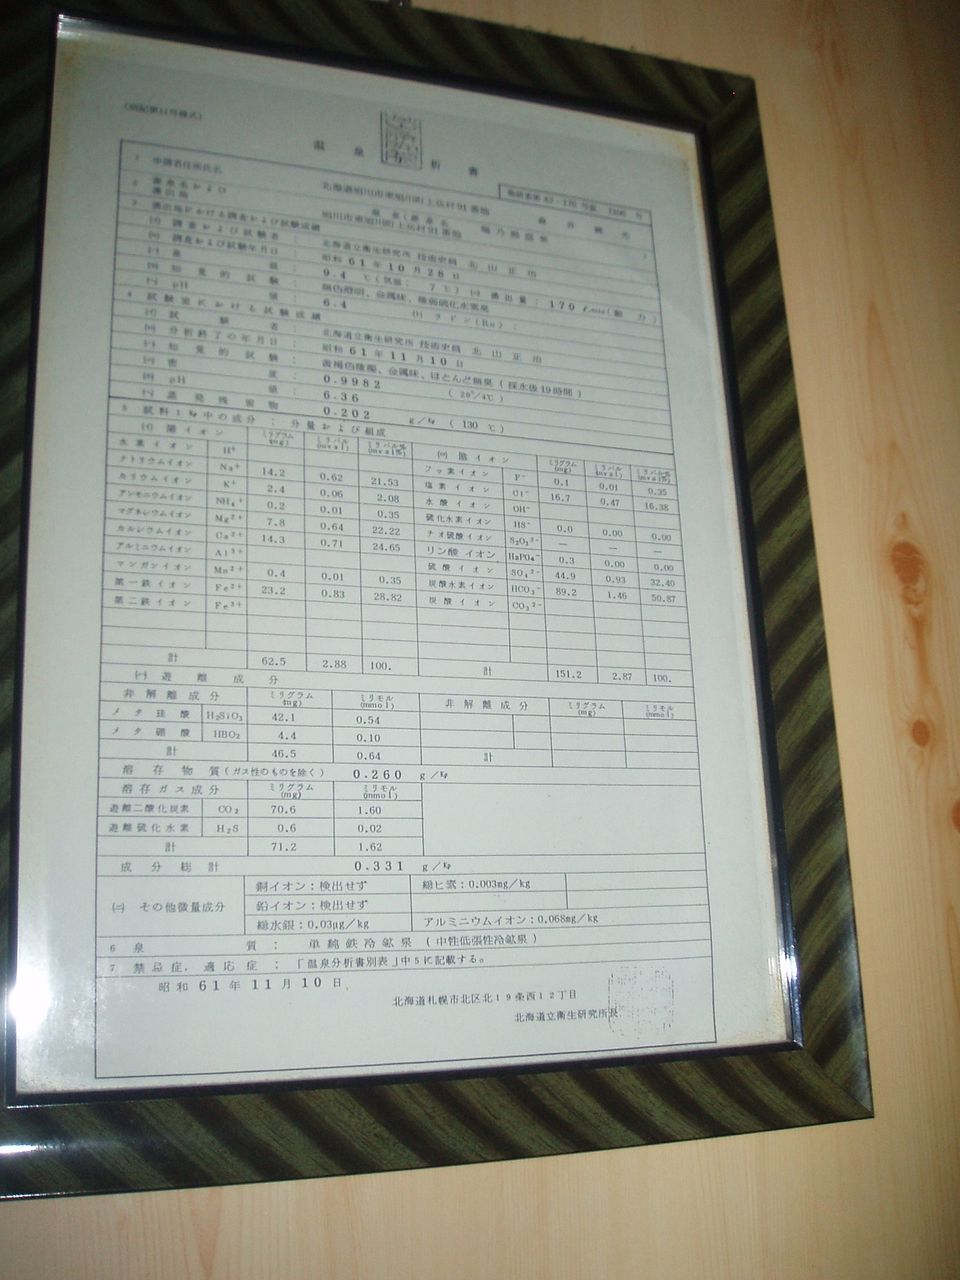 (別記第11号様式)
温泉分析書
1 申請者住所氏名 北海道旭川市東旭川町上兵村91番地
2 源泉名および湧出地
旭川市東旭川町上兵村91番地
3 湧出地における調査および試験成績
(イ) 調査および試験者 : 北海道立衛生研究所 技術吏員 北山正治
(ロ) 調査および試験年月日 : 昭和61年10月28日
(ハ) 泉温 : 9.4 ℃(気温: 7℃) (ニ) 湧出量: 170 ℓ/min(動力)
(ホ) 知覚的試験 : 無色澄明、金属味、微弱硫化水素臭
(ヘ) pH値 : 6.4 (ト) ラドン(Rn) :
4 試験室における試験成績
(イ) 試験者 : 北海道立衛生研究所 技術吏員 北山正治
(ロ) 分析終了の年月日 : 昭和61年11月10日
(ハ) 知覚的試験 : 黄褐色微濁、金属味、ほとんど無臭(採水後19時間)
(ニ) 密度 : 0.9982 (20°/4℃)
(ホ) pH値 : 6.36
(ヘ) 蒸発残留物 : 0.202 g/kg (130℃)
5 試料1kg中の成分: 分量および組成
(イ) 陽イオン ミリグラム(mg) ミリバル(mval) ミリバル%(mval%) (ロ) 陰イオン ミリグラム(mg) ミリバル(mval) ミリバル%(mval%)
水素イオン H⁺ フッ素イオン F⁻ 0.1 0.01 0.35
ナトリウムイオン Na⁺ 14.2 0.62 21.53 塩素イオン Cl⁻ 16.7 0.47 16.38
カリウムイオン K⁺ 2.4 0.06 2.08 水酸イオン OH⁻
アンモニウムイオン NH₄⁺ 0.2 0.01 0.35 硫化水素イオン HS⁻ 0.0 0.00 0.00
マグネシウムイオン Mg²⁺ 7.8 0.64 22.22 チオ硫酸イオン S₂O₃²⁻ — — —
カルシウムイオン Ca²⁺ 14.3 0.71 24.65 リン酸イオン H₂PO₄⁻ 0.3 0.00 0.00
アルミニウムイオン Al³⁺ 硫酸イオン SO₄²⁻ 44.9 0.93 32.40
マンガンイオン Mn²⁺ 0.4 0.01 0.35 炭酸水素イオン HCO₃⁻ 89.2 1.46 50.87
第一鉄イオン Fe²⁺ 23.2 0.83 28.82 炭酸イオン CO₃²⁻
第二鉄イオン Fe³⁺
計 62.5 2.88 100. 計 151.2 2.87 100.
(ハ) 遊離成分
非解離成分 ミリグラム(mg) ミリモル(mmol) 非解離成分 ミリグラム(mg) ミリモル(mmol)
メタ珪酸 H₂SiO₃ 42.1 0.54
メタ硼酸 HBO₂ 4.4 0.10
計 46.5 0.64 計
溶存物質(ガス性のものを除く) 0.260 g/kg
溶存ガス成分 ミリグラム(mg) ミリモル(mmol)
遊離二酸化炭素 CO₂ 70.6 1.60
遊離硫化水素 H₂S 0.6 0.02
計 71.2 1.62
成分総計 0.331 g/kg
(ニ) その他微量成分
銅イオン:検出せず 総ヒ素:0.003mg/kg
鉛イオン:検出せず
総水銀:0.03μg/kg アルミニウムイオン:0.068mg/kg
6 泉質 : 単純鉄冷鉱泉 (中性低張性冷鉱泉)
7 禁忌症、適応症:「温泉分析書別表」中5に記載する。
昭和61年11月10日、
北海道札幌市北区北19条西12丁目
北海道立衛生研究所長